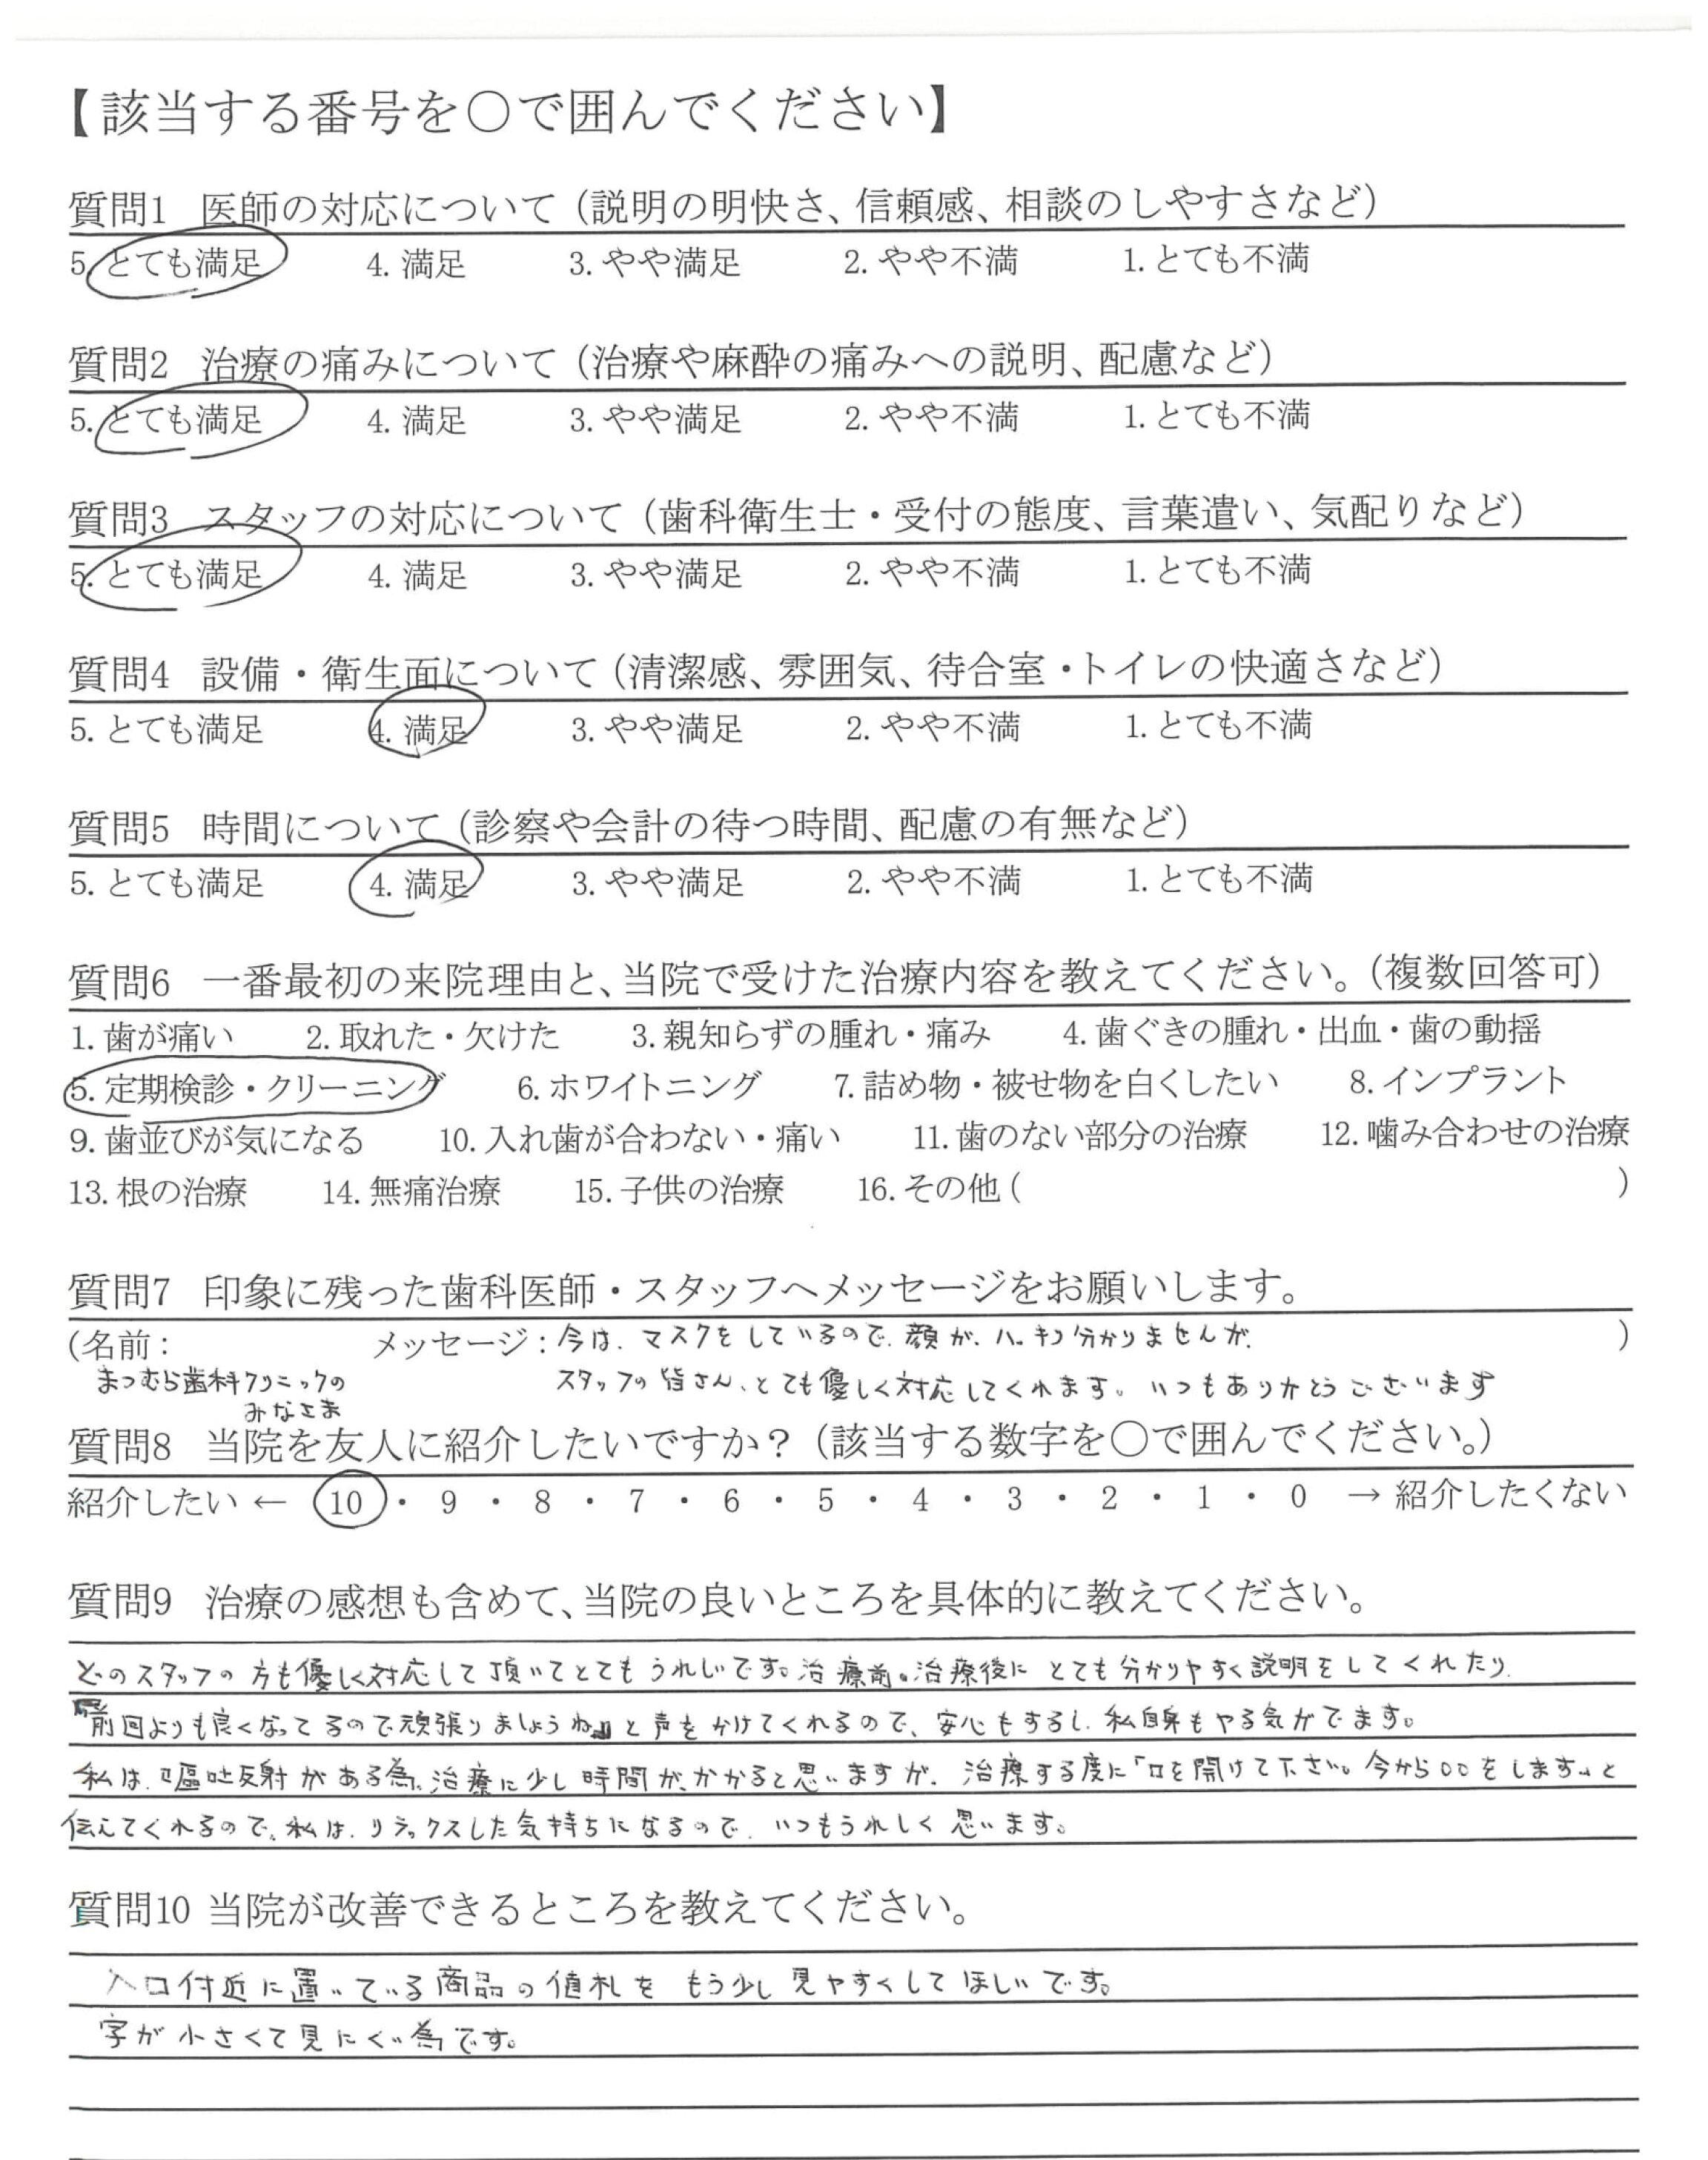 【該当する番号を〇で囲んでください】
質問1 医師の対応について（説明の明快さ、信頼感、相談のしやすさなど）
5. とても満足 4. 満足 3. やや満足 2. やや不満 1. とても不満
質問2 治療の痛みについて（治療や麻酔の痛みへの説明、配慮など）
5. とても満足 4. 満足 3. やや満足 2. やや不満 1. とても不満
質問3 スタッフの対応について（歯科衛生士・受付の態度、言葉遣い、気配りなど）
5. とても満足 4. 満足 3. やや満足 2. やや不満 1. とても不満
質問4 設備・衛生面について（清潔感、雰囲気、待合室・トイレの快適さなど）
5. とても満足 4. 満足 3. やや満足 2. やや不満 1. とても不満
質問5 時間について（診察や会計の待つ時間、配慮の有無など）
5. とても満足 4. 満足 3. やや満足 2. やや不満 1. とても不満
質問6 一番最初の来院理由と、当院で受けた治療内容を教えてください。（複数回答可）
1. 歯が痛い 2. 取れた・欠けた 3. 親知らずの腫れ・痛み 4. 歯ぐきの腫れ・出血・歯の動揺
5. 定期検診・クリーニング 6. ホワイトニング 7. 詰め物・被せ物を白くしたい 8. インプラント
9. 歯並びが気になる 10. 入れ歯が合わない・痛い 11. 歯のない部分の治療 12. 噛み合わせの治療
13. 根の治療 14. 無痛治療 15. 子供の治療 16. その他（ ）
質問7 印象に残った歯科医師・スタッフへメッセージをお願いします。
（名前： メッセージ：今は、マスクをしているので、顔が、ハッキリ分かりませんが、 ）
まつむら歯科クリニックの スタッフの皆さん、とても優しく対応してくれます。いつもありがとうございます
みなさま
質問8 当院を友人に紹介したいですか？（該当する数字を〇で囲んでください。）
紹介したい ← 10 ・ 9 ・ 8 ・ 7 ・ 6 ・ 5 ・ 4 ・ 3 ・ 2 ・ 1 ・ 0 → 紹介したくない
質問9 治療の感想も含めて、当院の良いところを具体的に教えてください。
どのスタッフの方も優しく対応して頂いてとてもうれしいです。治療前。治療後にとても分かりやすく説明をしてくれたり、
『前回よりも良くなってるので頑張りましょうね』と声をかけてくれるので、安心もするし、私自身もやる気がでます。
私は、嘔吐反射がある為、治療に少し時間が、かかると思いますが、治療する度に「口を開けて下さい。今から○○をします」と
伝えてくれるので、私は、リラックスした気持ちになるので、いつもうれしく思います。
質問10 当院が改善できるところを教えてください。
入口付近に置いている商品の値札をもう少し見やすくしてほしいです。
字が小さくて見にくい為です。